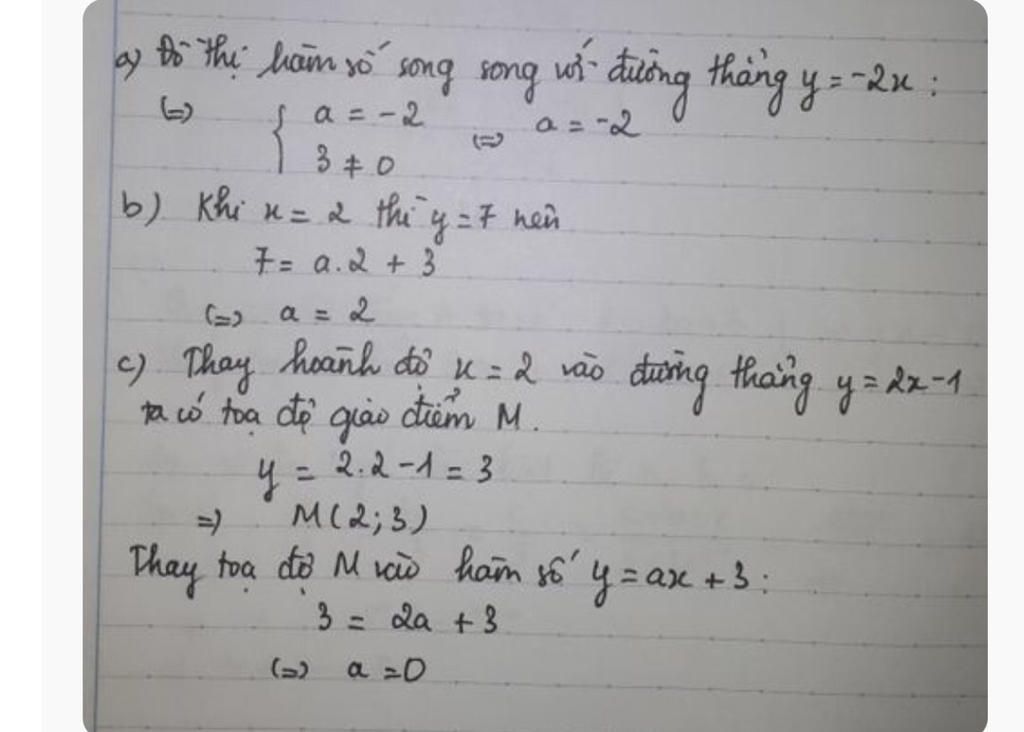 a) Đồ thị hàm số song song với đường thẳng y = -2x :
(=) { a = -2 (=) a = -2
3 ≠ 0
b) Khi x = 2 thì y = 7 nên
7 = a.2 + 3
(=) a = 2
c) Thay hoành độ x = 2 vào đường thẳng y = 2x - 1
ta có toạ độ giao điểm M.
y = 2.2 - 1 = 3
=) M(2;3)
Thay toạ độ M vào hàm số y = ax + 3 :
3 = 2a + 3
(=) a = 0